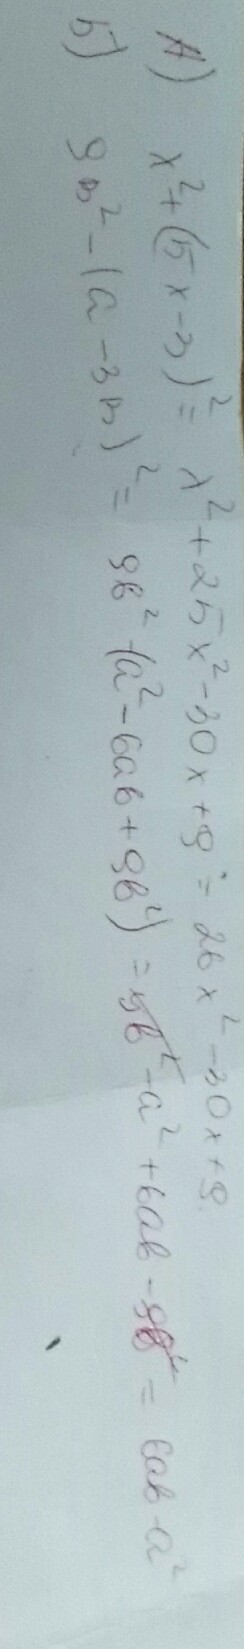 А) x²+(5x-3)² = x²+25x²-30x+9 = 26x²-30x+9.
Б) 9в²-(а-3в)² = 9b²-(a²-6ab+9b²) = 9b²-a²+6ab-9b² = 6ab-a²